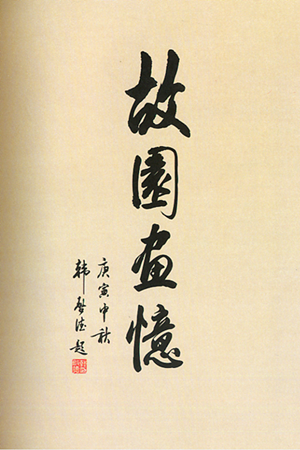 故園画憶
庚寅中秋
韩启德题